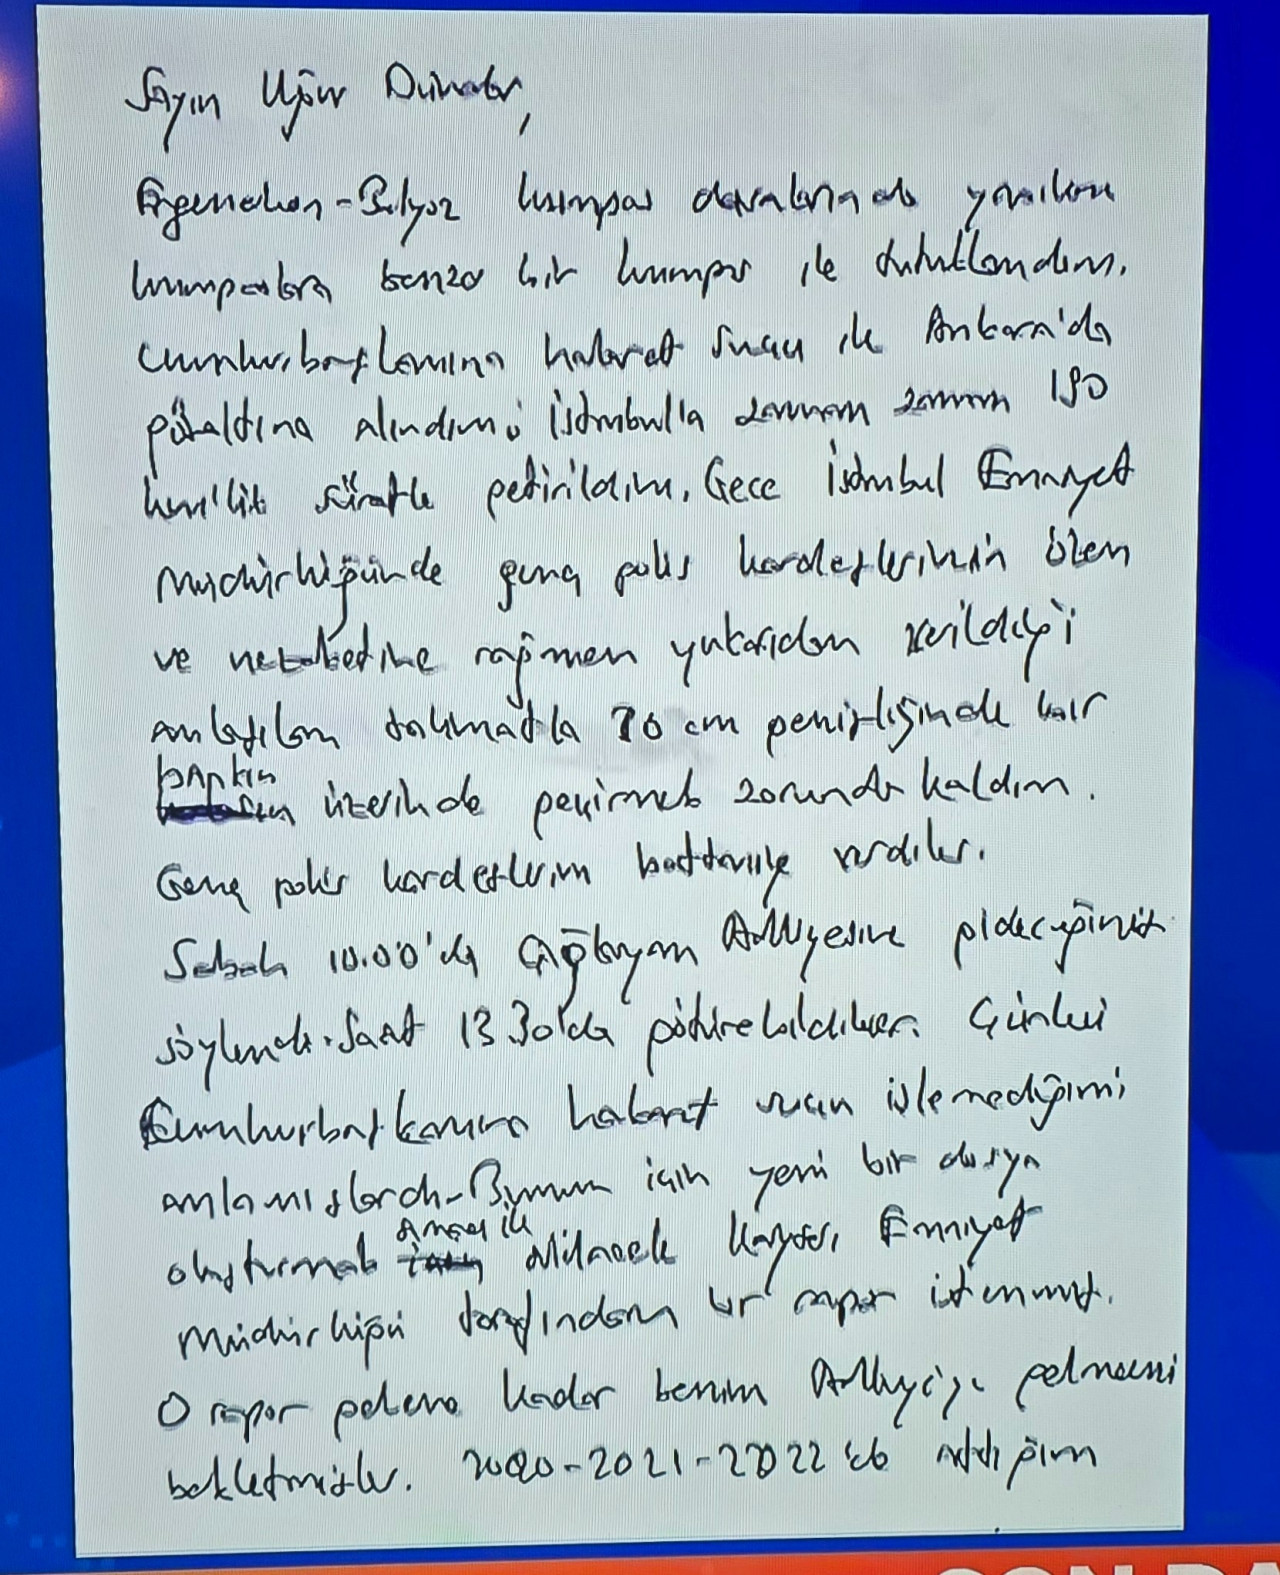 Sayın Uğur Dündar,
Ergenekon-Balyoz kumpas davalarında yapılan
kumpaslara benzer bir kumpas ile tutuklandım.
Cumhurbaşkanına hakaret suçu ile Ankara'da
gözaltına alındım; İstanbul'la zaman zaman 190
km'lik süratle getirildim. Gece İstanbul Emniyet
Müdürlüğünde genç polis kardeşlerimin özen
ve nezaketine rağmen yukarıdan verildiği
anlaşılan talimatla 70 cm genişliğinde bir
bankın üzerinde geçirmek zorunda kaldım.
Genç polis kardeşlerim battaniye verdiler.
Sabah 10.00'da Çağlayan Adliyesine gideceğimiz
söylendi. Saat 13.30'da götürebildiler. Çünkü
Cumhurbaşkanına hakaret suçu işlemediğimi
anlamışlardı. Benim için yeni bir dosya
oluşturmak amacı ile alelacele Kayseri Emniyet
Müdürlüğü tarafından bir rapor istenmiş.
O rapor gelene kadar benim Adliye'ye gelmemi
bekletmişler. 2020-2021-2022'de attığım
SON DA